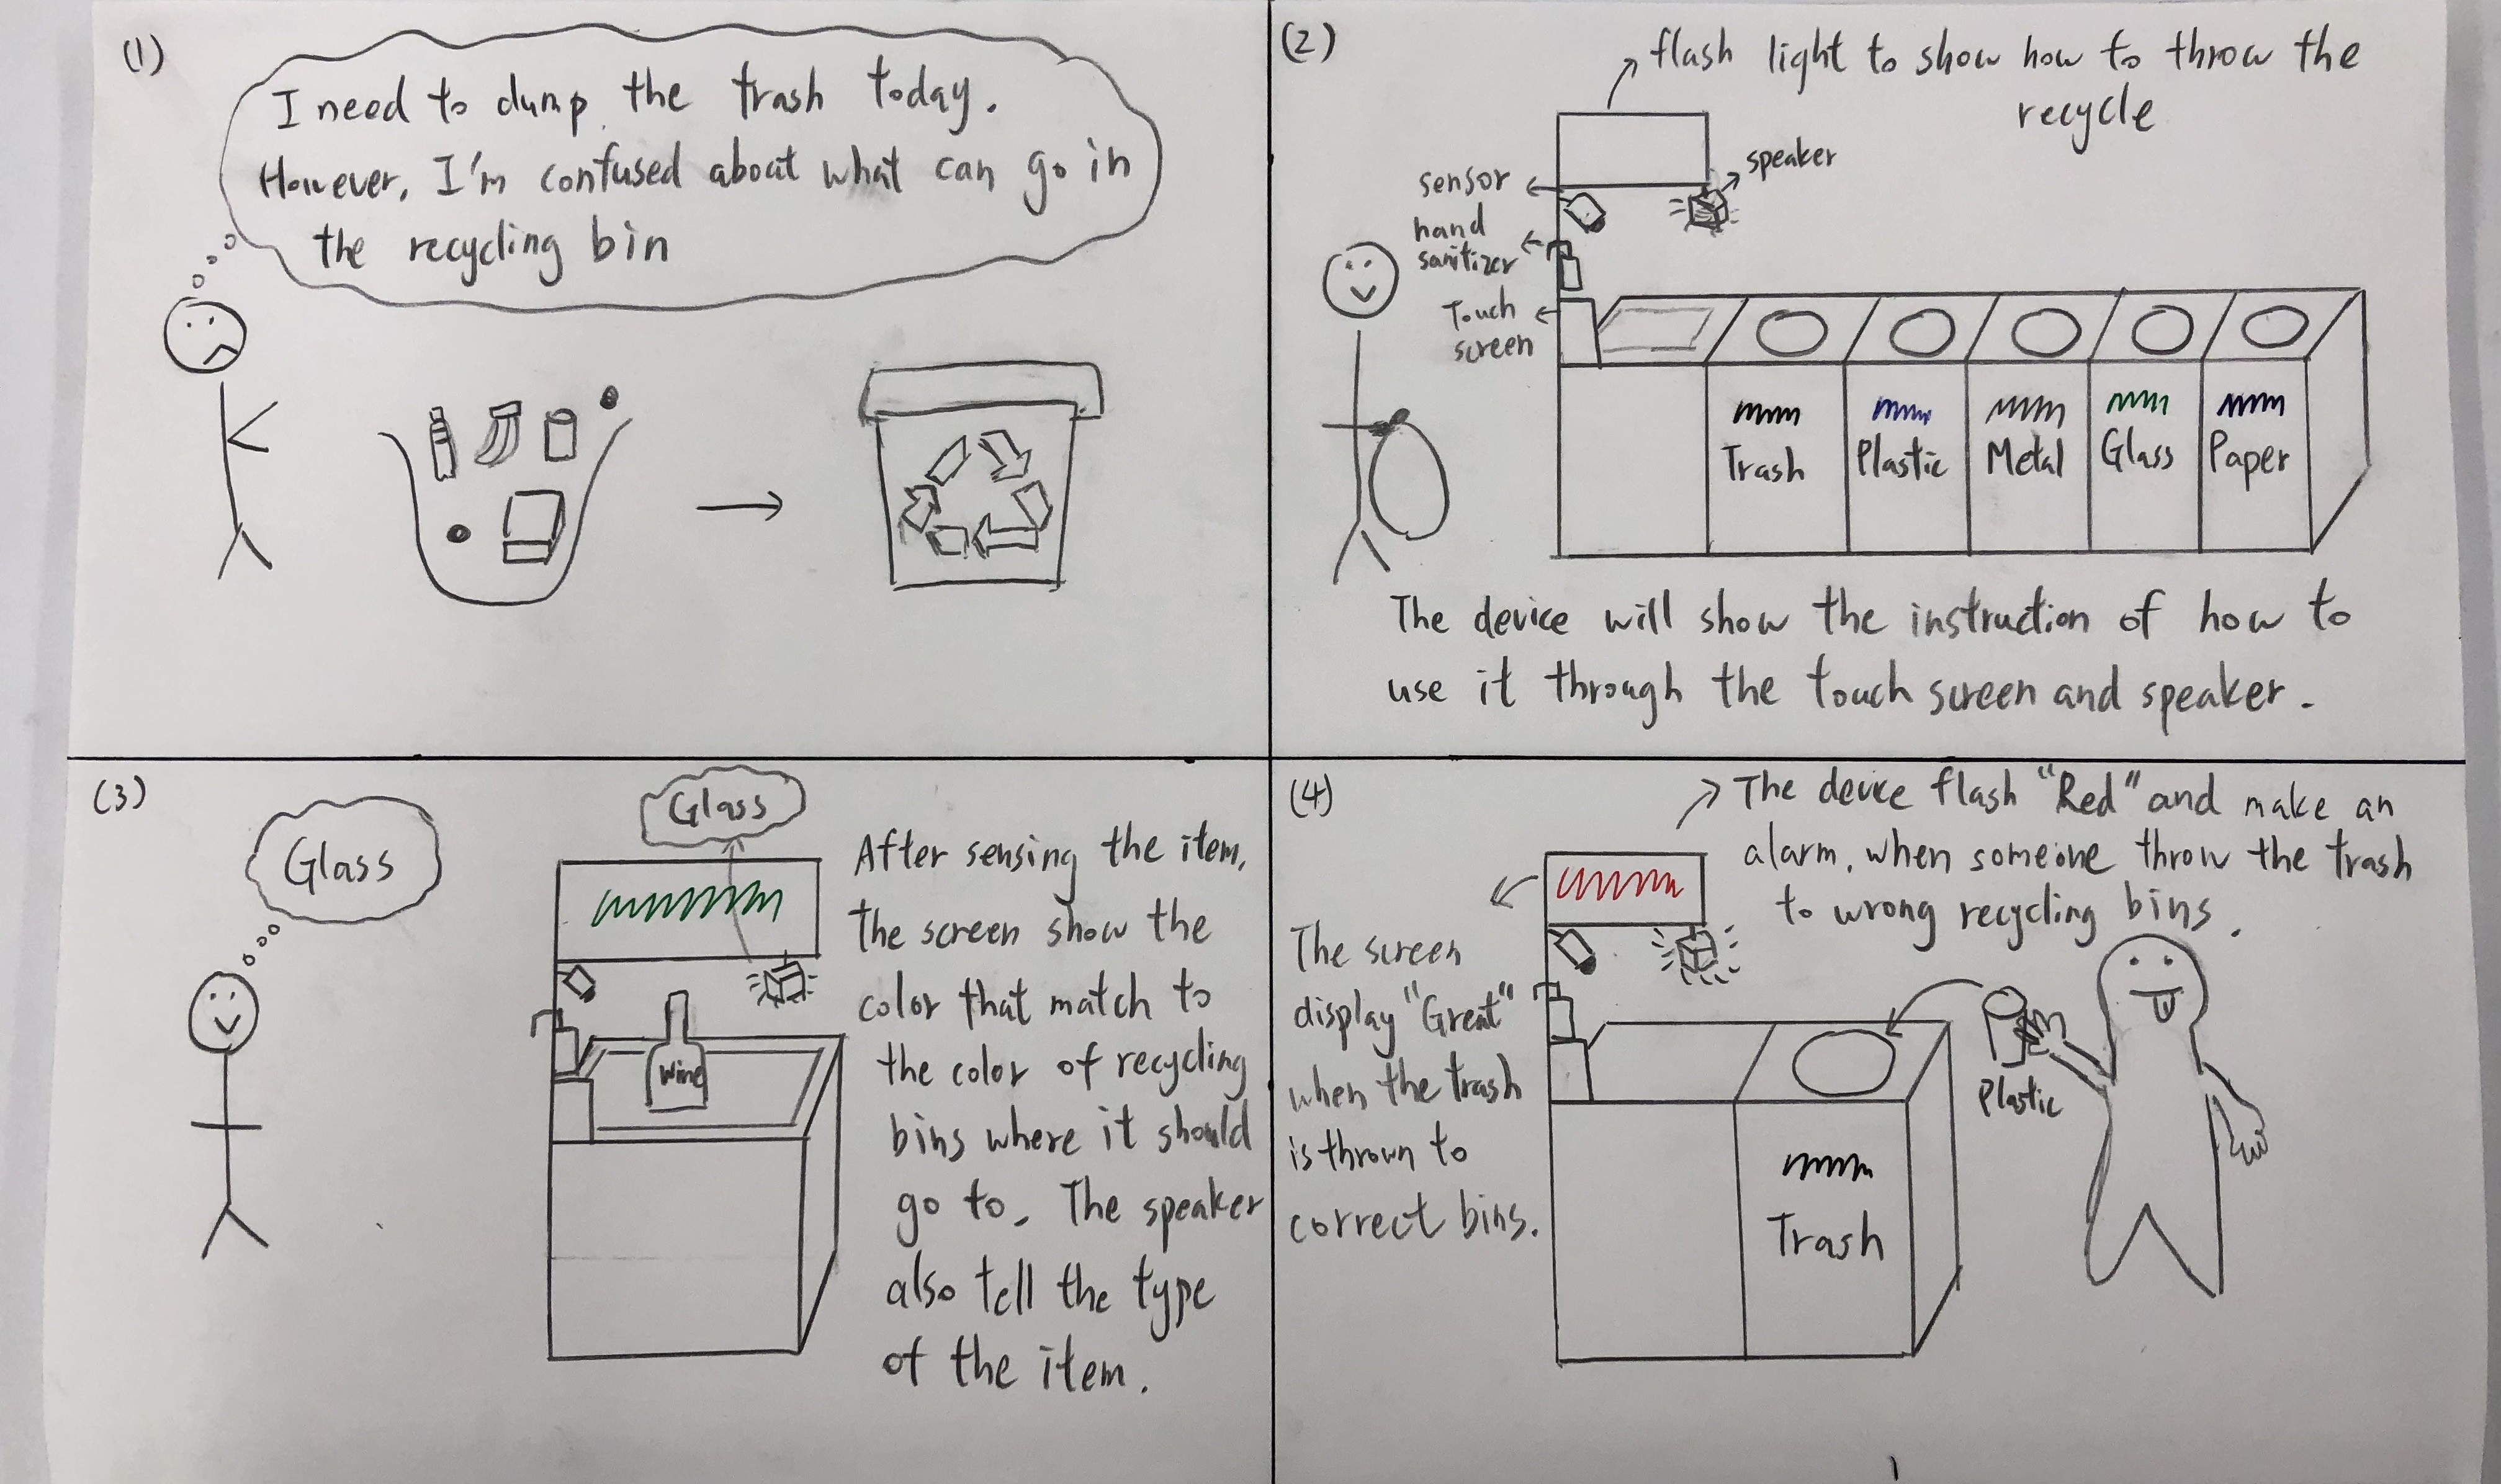 (1)
I need to dump the trash today.
However, I'm confused about what can go in
the recycling bin
(2)
flash light to show how to throw the
recycle
speaker
sensor
hand
sanitizer
Touch
screen
Trash
Plastic
Metal
Glass
Paper
The device will show the instruction of how to
use it through the touch screen and speaker.
(3)
Glass
Glass
Wine
After sensing the item,
the screen show the
color that match to
the color of recycling
bins where it should
go to. The speaker
also tell the type
of the item.
(4)
The device flash "Red" and make an
alarm, when someone throw the trash
to wrong recycling bins.
The screen
display "Great"
when the trash
is thrown to
correct bins.
Plastic
Trash